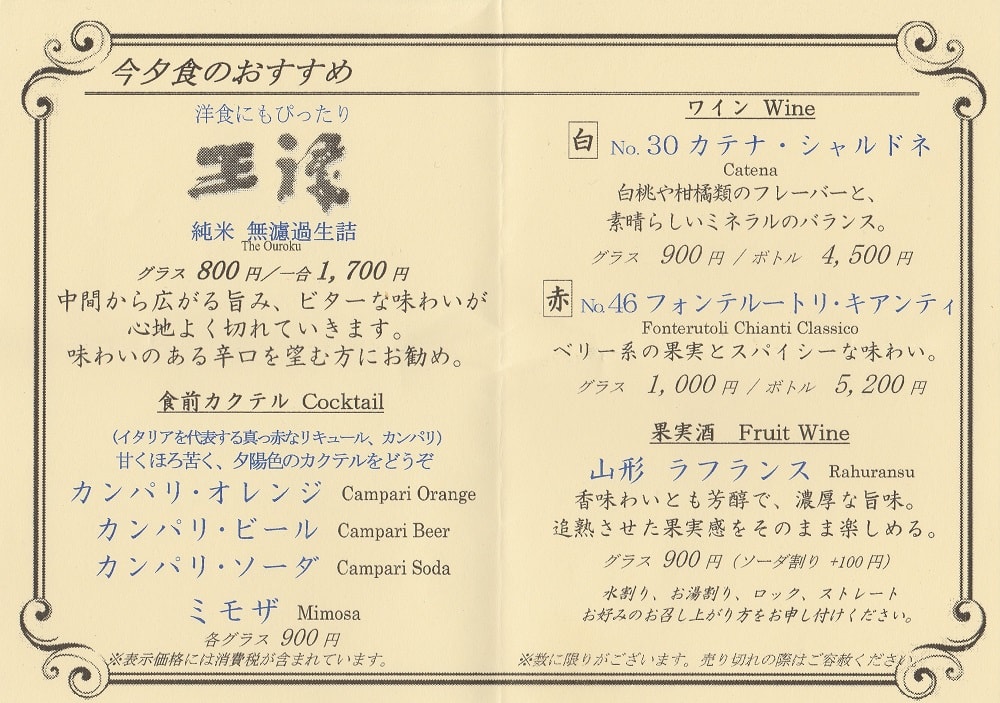 今夕食のおすすめ
洋食にもぴったり
王祿
純米 無濾過生詰
The Ouroku
グラス 800 円／一合 1,700 円
中間から広がる旨み、ビターな味わいが
心地よく切れていきます。
味わいのある辛口を望む方にお勧め。
食前カクテル Cocktail
（イタリアを代表する真っ赤なリキュール、カンパリ）
甘くほろ苦く、夕陽色のカクテルをどうぞ
カンパリ・オレンジ Campari Orange
カンパリ・ビール Campari Beer
カンパリ・ソーダ Campari Soda
ミモザ Mimosa
各グラス 900 円
※表示価格には消費税が含まれています。
ワイン Wine
白 No. 30 カテナ・シャルドネ
Catena
白桃や柑橘類のフレーバーと、
素晴らしいミネラルのバランス。
グラス 900 円 / ボトル 4,500 円
赤 No. 46 フォンテルートリ・キアンティ
Fonterutoli Chianti Classico
ベリー系の果実とスパイシーな味わい。
グラス 1,000 円 / ボトル 5,200 円
果実酒 Fruit Wine
山形 ラフランス Rahuransu
香味わいとも芳醇で、濃厚な旨味。
追熟させた果実感をそのまま楽しめる。
グラス 900 円（ソーダ割り +100 円）
水割り、お湯割り、ロック、ストレート
お好みのお召し上がり方をお申し付けください。
※数に限りがございます。売り切れの際はご容赦ください。